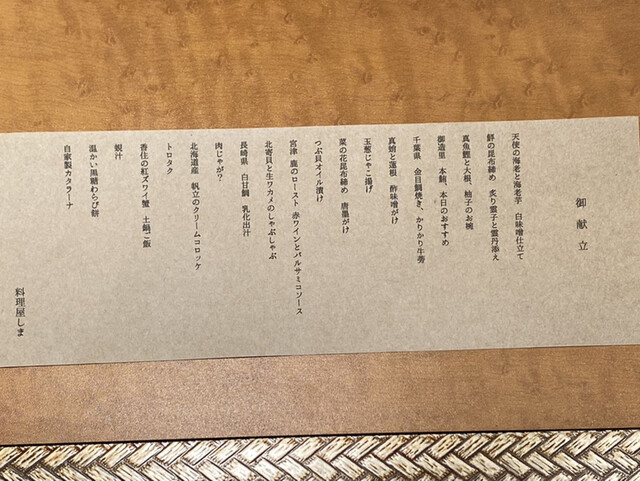 御献立
天使の海老と海老芋　白味噌仕立て
鮃の昆布締め　炙り雲子と雲丹添え
真魚鰹と大根、柚子のお椀
御造里　本鮪、本日のおすすめ
千葉県　金目鯛焼き、かりかり牛蒡
真蛸と蓮根　酢味噌がけ
玉葱じゃこ揚げ
菜の花昆布締め　唐墨がけ
つぶ貝オイル漬け
宮津　鹿のロースト　赤ワインとバルサミコソース
北寄貝と生ワカメのしゃぶしゃぶ
長崎県　白甘鯛　乳化出汁
肉じゃが？
北海道産　帆立のクリームコロッケ
トロタク
香住の紅ズワイ蟹　土鍋ご飯
蜆汁
温かい黒糖わらび餅
自家製カタラーナ
料理屋しま